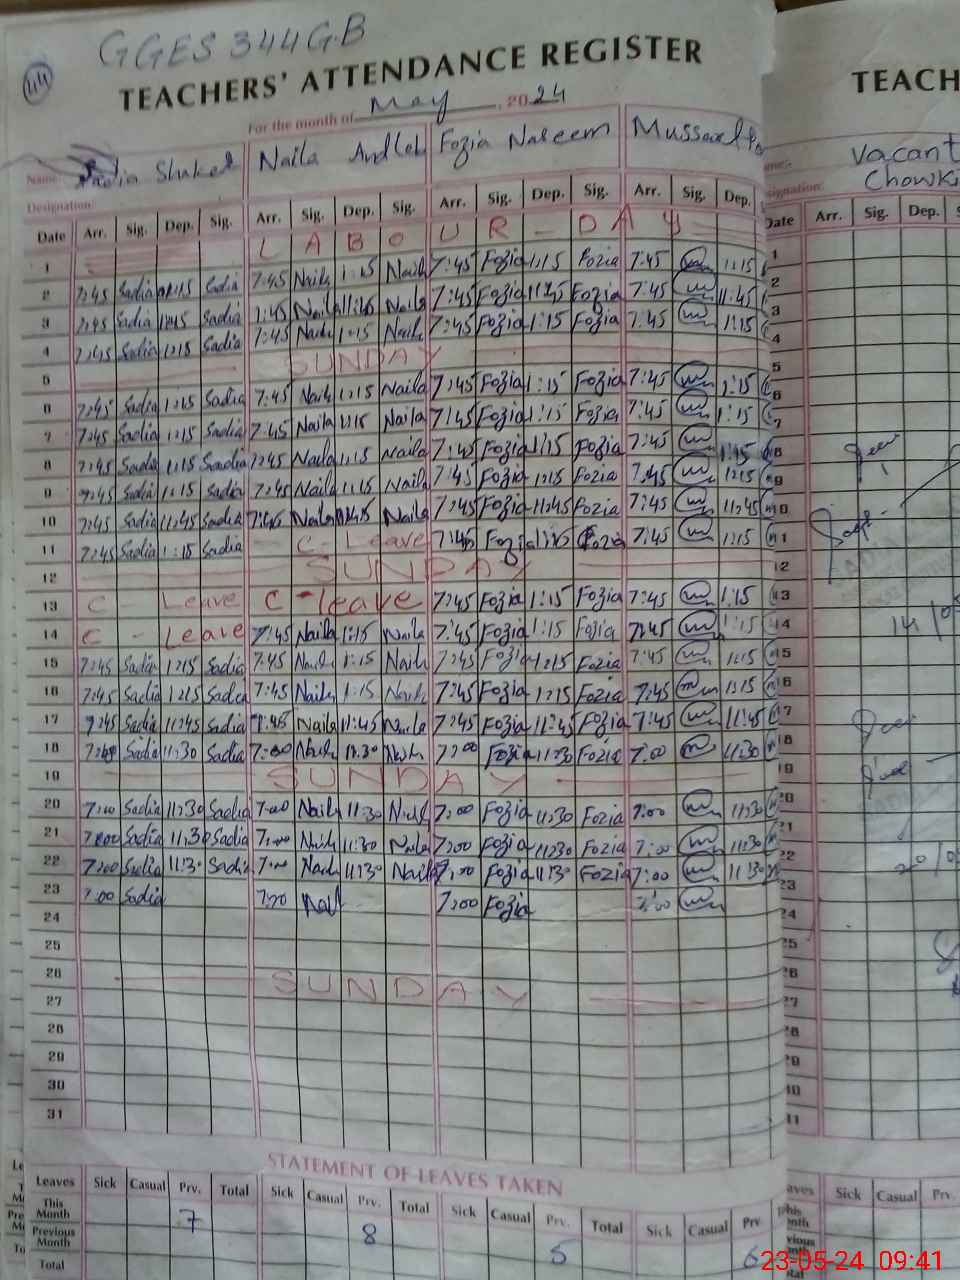 GGES 344GB
TEACHERS' ATTENDANCE REGISTER
For the month of May, 2024
Name: Sadia Naila Andleeb Fozia Naseem
Designation:
Date Arr. Sig. Dep. Sig. Arr. Sig. Dep. Sig. Arr. Sig. Dep. Sig. Arr. Sig. Dep.
1 LABOUR - DAY
2 7:45 Sadia Sadia 7:45 Naila 1:15 Naila 7:45 Fozia 1:15 Fozia 7:45 1:15
3 7:45 Sadia Sadia 7:45 Naila 11:45 Naila 7:45 Fozia 11:45 Fozia 7:45 11:45
4 7:45 Sadia 1:15 Sadia 7:45 Naila 1:15 Naila 7:45 Fozia 1:15 Fozia 7:45 1:15
5 SUNDAY
6 7:45 Sadia 1:15 Sadia 7:45 Naila 1:15 Naila 7:45 Fozia 1:15 Fozia 7:45 1:15
7 7:45 Sadia 1:15 Sadia 7:45 Naila 1:15 Naila 7:45 Fozia 1:15 Fozia 7:45 1:15
8 7:45 Sadia 1:15 Saadia 7:45 Naila 1:15 Naila 7:45 Fozia 1:15 Fozia 7:45
9 7:45 Sadia 1:15 Sadia 7:45 Naila 1:15 Naila 7:45 Fozia 1:15 Fozia 7:45 1:15
10 7:45 Sadia 11:45 Sadia 7:45 Naila Naila 7:45 Fozia 11:45 Fozia 7:45 11:45
11 7:45 Sadia 1:15 Sadia - C - Leave 7:45 Fozia 1:15 Fozia 7:45 1:15
12 SUNDAY
13 C - Leave C - leave 7:45 Fozia 1:15 Fozia 7:45 1:15
14 C - Leave 7:45 Naila 1:15 Naila 7:45 Fozia 1:15 Fozia 7:45 1:15
15 7:45 Sadia 1:15 Sadia 7:45 Naila 1:15 Naila 7:45 Fozia 1:15 Fozia 7:45 1:15
16 7:45 Sadia 1:15 Sadia 7:45 Naila 1:15 Naila 7:45 Fozia 1:15 Fozia 7:45 1:15
17 7:45 Sadia 11:45 Sadia 7:45 Naila 11:45 Naila 7:45 Fozia 11:45 Fozia 7:45 11:45
18 Sadia 11:30 Sadia 7:00 Naila 11:30 Naila 7:00 Fozia 11:30 Fozia 7:00 11:30
19 SUNDAY
20 7:00 Sadia 11:30 Sadia 7:00 Naila 11:30 Naila 7:00 Fozia 11:30 Fozia 7:00 11:30
21 7:00 Sadia 11:30 Sadia 7:00 Naila 11:30 Naila 7:00 Fozia 11:30 Fozia 7:00 11:30
22 7:00 Sadia 11:30 Sadia 7:00 Naila 11:30 Naila 7:00 Fozia 11:30 Fozia 7:00 11:30
23 7:00 Sadia 7:00 Nail 7:00 Fozia 7:00
24
25
26 SUNDAY
27
28
29
30
31
STATEMENT OF LEAVES TAKEN
Leaves Sick Casual Prv. Total Sick Casual Prv. Total Sick Casual Prv. Total Sick Casual Prv.
This Month 7 8 5 6
Previous Month
Total
TEACH
Vacant
Chowki
Date Arr. Sig. Dep.
Sick Casual Prv.
23-05-24 09:41